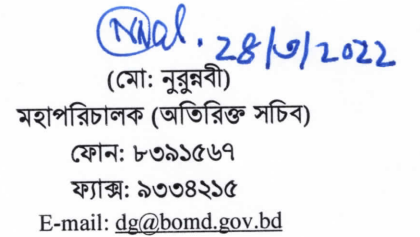 28/৩/2022
(মো: নুরুন্নবী)
মহাপরিচালক (অতিরিক্ত সচিব)
ফোন: ৮৩৯১৫৬৭
ফ্যাক্স: ৯৩৩৪২১৫
E-mail: dg@bomd.gov.bd